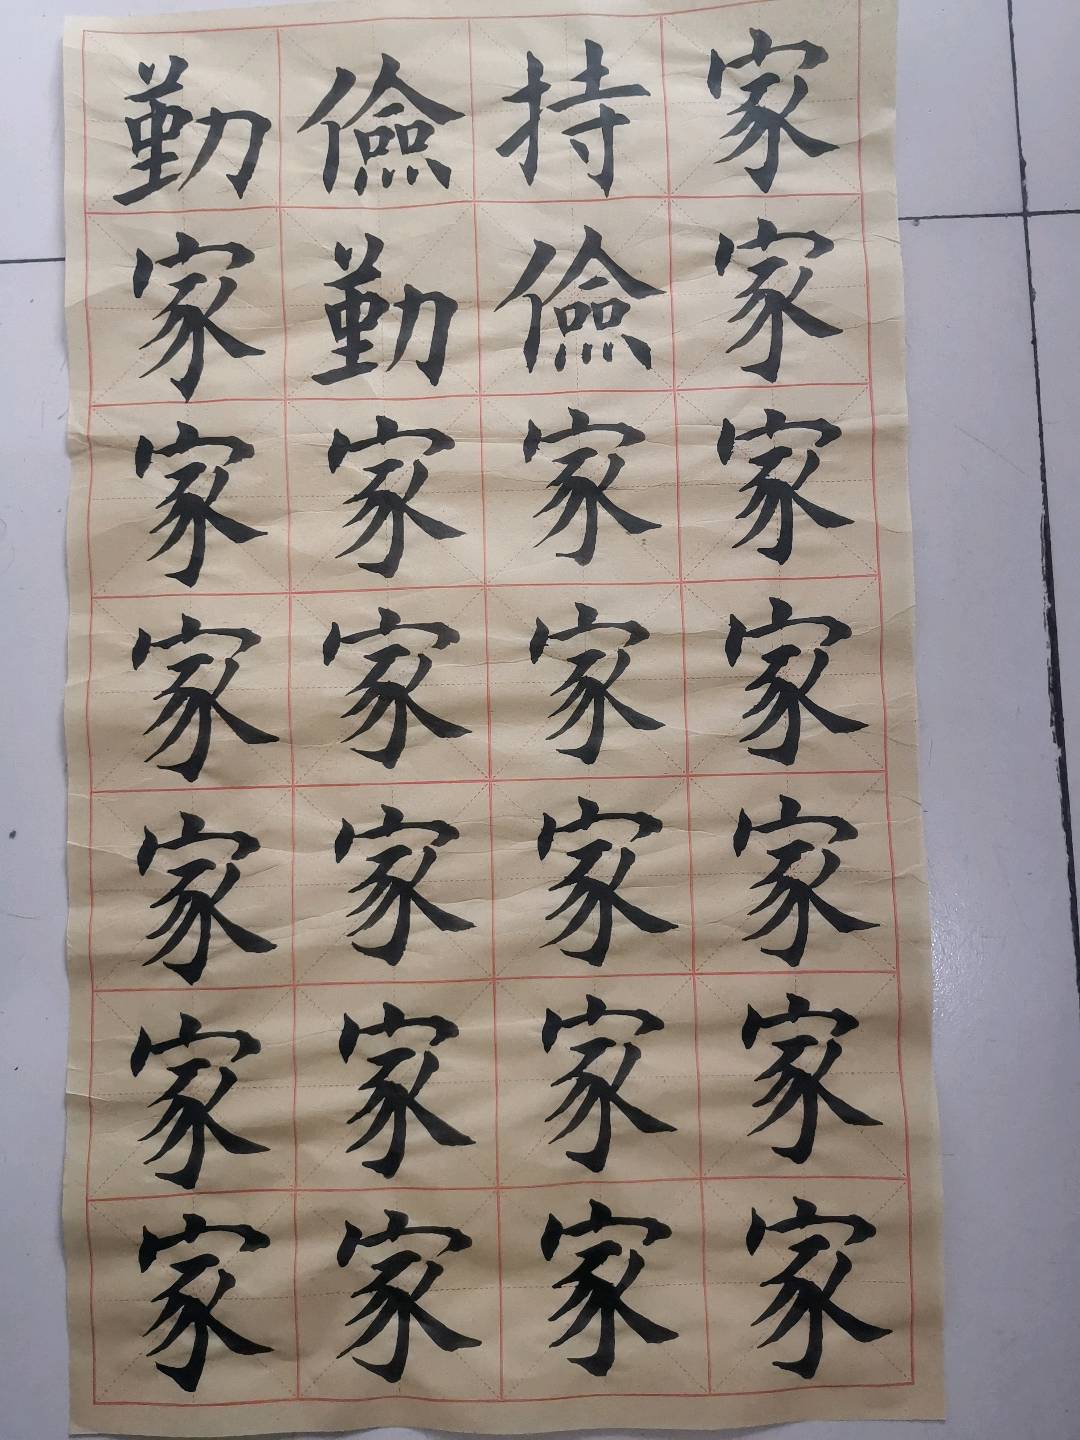 勤儉持家
家勤儉家
家家家家
家家家家
家家家家
家家家家
家家家家